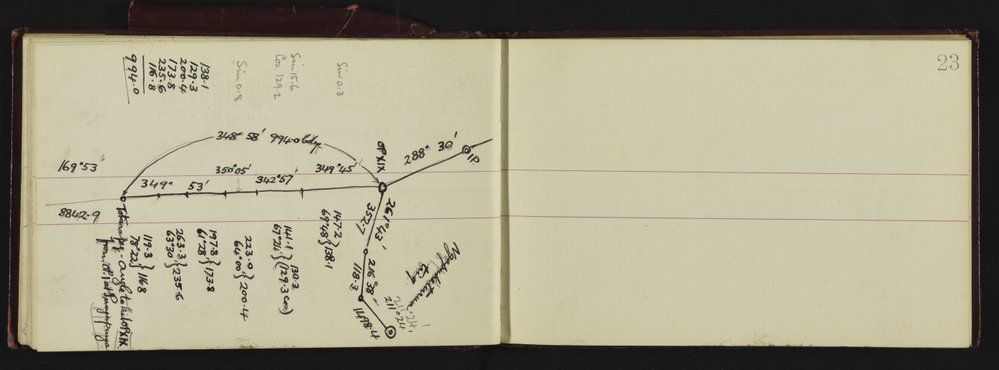 23
138.1
129.3
200.4
173.8
235.6
116.8
994.0
Sin 0.8
Sin 15.6
Cos 129.2
Sin 0.3
348° 58' 994.0
169° 53'
349° 53'
350° 05'
342° 57'
349° 45'
OP XIX
288° 30'
IP.
8842.9
261° 43'
352.7
118.3
1498.4
Trig
211° 24'
211° 24'
147.2
69° 48' } 138.1
130.3
141.1 } (129.3 cos)
67° 24'
223.0
64° 00' } 200.4
197.8
61° 28' } 173.8
263.3
63° 30' } 235.6
119.3
78° 22' } 116.8
Angle to the OP XIX
from OP.